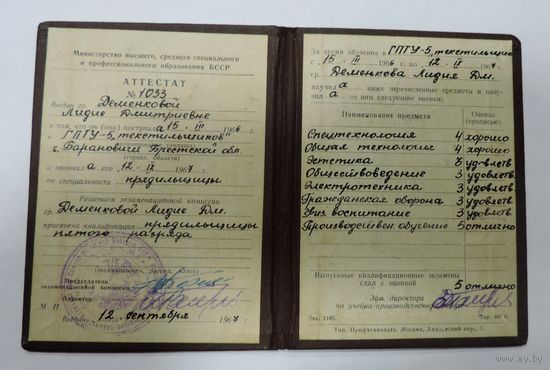 Министерство высшего, среднего специального
и профессионального образования БССР
АТТЕСТАТ
№ 1033
Выдан гр. Деменковой
Лидие Дмитриевне
в том, что он (она) поступила 15 - III 1966 г.
ГПТУ-5 „текстильщиков"
г. Барановичи Брестской обл.
(города, области)
и окончила его 12 - IX 1967 г.
по специальности прядильщицы
Решением экзаменационной комиссии
гр. Деменковой Лидие Дм.
присвоена квалификация прядильщицы
пятого разряда
Председатель
экзаменационной комиссии
Директор
М П.
Выдан 12 сентября 1967 г.
За время обучения в ГПТУ-5 „текстильщик
с 15 - III 1966 г. по 12 - IX 1967 г.
гр. Деменкова Лидия Дм.
изучила ниже перечисленные предметы и полу-
чила по ним следующие оценки:
Наименование предмета Оценка (прописью)
Спецтехнология 4 хорошо
Общая технология 4 хорошо
Эстетика 3 удовлетв
Обществоведение 3 удовлетв.
Электротехника 3 удовлетв.
Гражданская оборона 3 удовлетв
Физ воспитание 3 удовлетв
Производствен. обучение 5 отлично
Выпускные квалификационные экзамены
сдал с оценкой 5 отлично
Зам. директора
по учебно-производственной
Зак. 1105.
Тип. Профтехиздата. Москва, Хохловский пер., 7.
www.ay.by